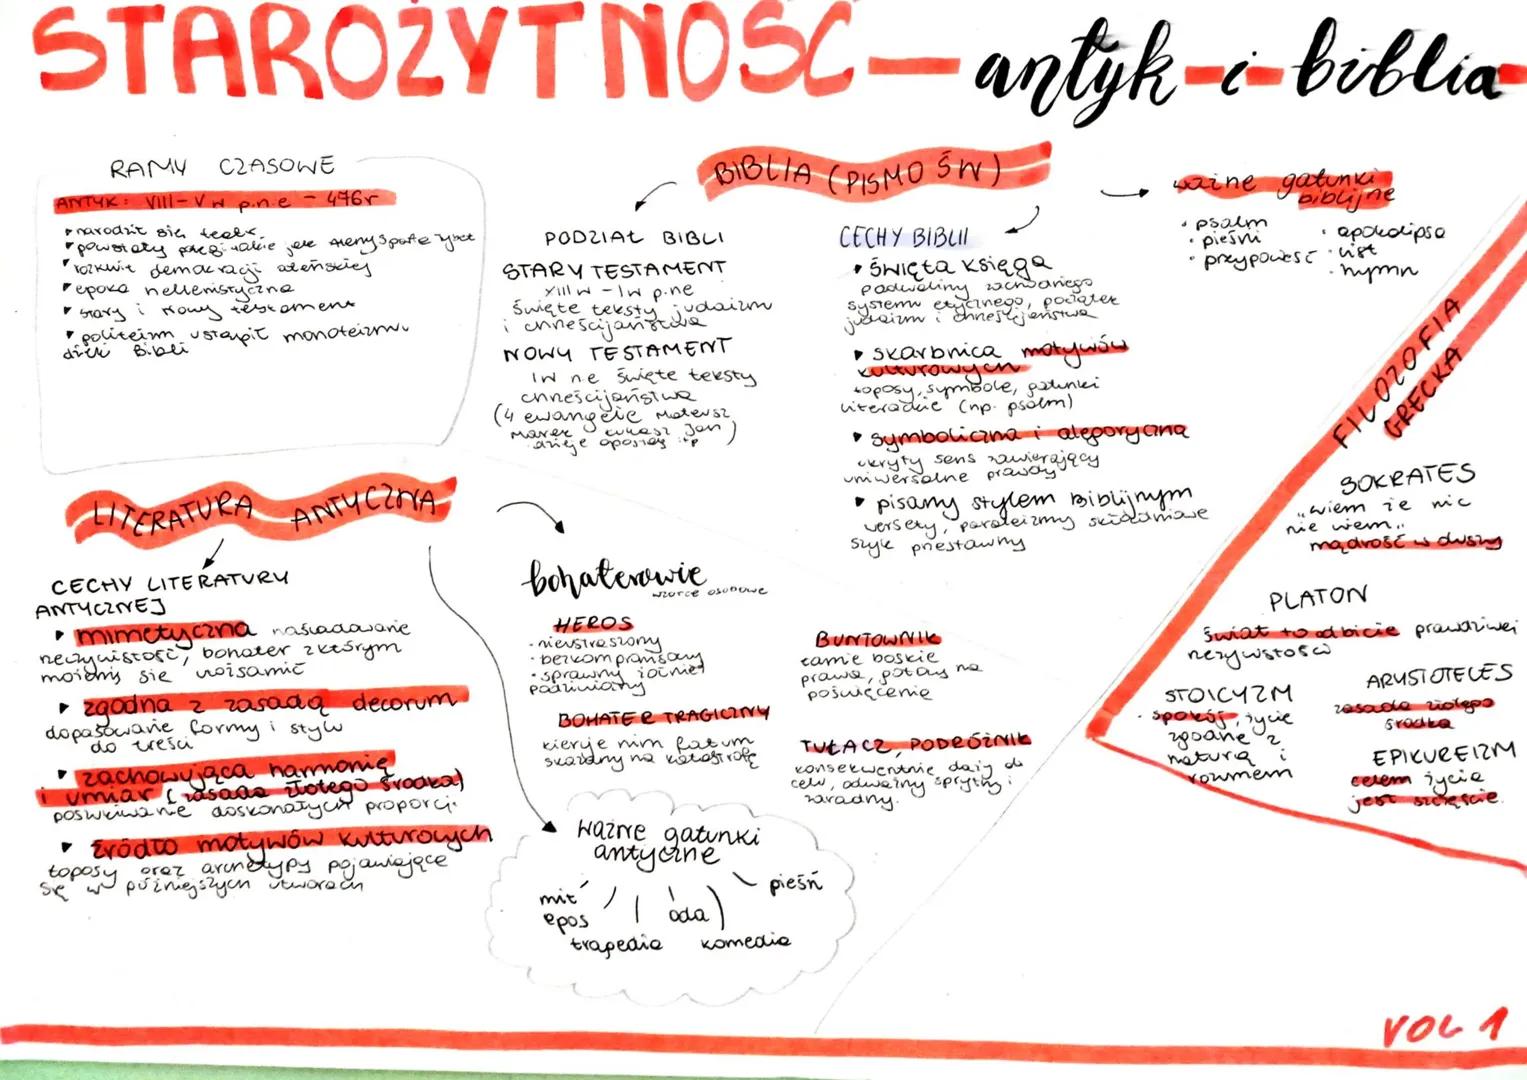 STAROŻYTNOŚĆ — antyk - i - biblia
RAMY CZASOWE
ANTYK: VIII - V w p.n.e - 476r
narodził się teatr
powstały jak Ateny Sparta
rozkwit demokracji ateńskiej
epoka hellenistyczna
stary i nowy testament
politeizm ustąpił monoteizmu
dzięki Bibli
BIBLIA (PISMO ŚW)
PODZIAŁ BIBLI
STARY TESTAMENT
XIII w - I w p.ne
Święte teksty judaizm
i chrześcijaństwa
NOWY TESTAMENT
I w n.e święte teksty
chrześcijaństwa
(4 ewangelie Mateusz
Marek Łukasz Jan)
dzieje apostoły itp
CECHY BIBLII
Święta księga
podwaliny zachodniego
systemu etycznego, początek
judaizm i chrześcijaństwa
skarbnica motywów
kulturowych
toposy, symbole, gatunki
literackie (np. psalm)
symboliczna i alegoryczna
ukryty sens zawierający
uniwersalne prawdy
pisany stylem Biblijnym
wersety, paralelizmy składniowe
szyk przestawny
ważne gatunki
biblijne
• psalm
• pieśni
• przypowieść
• apokalipsa
• list
• hymn
LITERATURA ANTYCZNA
CECHY LITERATURY
ANTYCZNEJ
mimetyczna naśladowanie
rzeczywistość, bohater z którym
możemy się utożsamić
zgodna z zasadą decorum
dopasowanie formy i stylu
do treści
zachowująca harmonię
i umiar (zasada złotego środka)
poszukiwanie doskonałych proporcji
źródło motywów kulturowych
toposy oraz archetypy pojawiające
się w późniejszych utworach
bohaterowie
wzorce osobowe
HEROS
• nieustraszony
• bezkompromisowy
• sprawny żołnierz
podziwiany
BOHATER TRAGICZNY
kieruje nim fatum
skazany na katastrofę
BUNTOWNIK
łamie boskie
prawa, gotowy na
poświęcenie
TUŁACZ, PODRÓŻNIK
konsekwentnie dąży do
celu, odważny sprytny i
zaradny.
ważne gatunki
antyczne
mit
epos
tragedia
oda
komedia
pieśń
FILOZOFIA
GRECKA
SOKRATES
"wiem że nic
nie wiem"
mądrość w duszy
PLATON
Świat to odbicie prawdziwej
rzeczywistości
STOICYZM
• spokój, życie
zgodne z
naturą i
rozumem
ARYSTOTELES
zasada złotego
środka
EPIKUREIZM
celem życia
jest szczęście
VOL 1